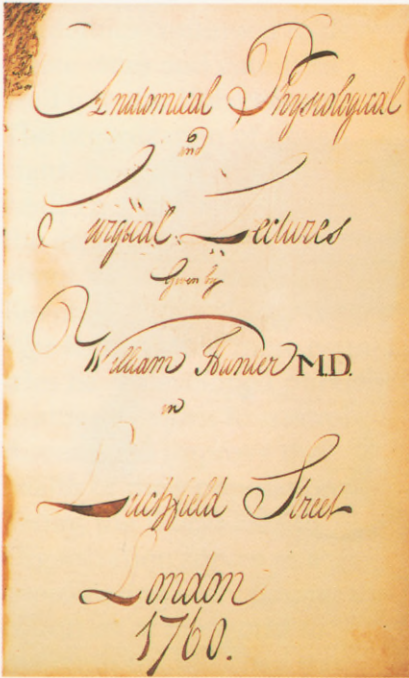 Anatomical Physiological
and
Surgical Lectures
Given by
William Hunter M.D.
in
Litchfield Street
London
1760.